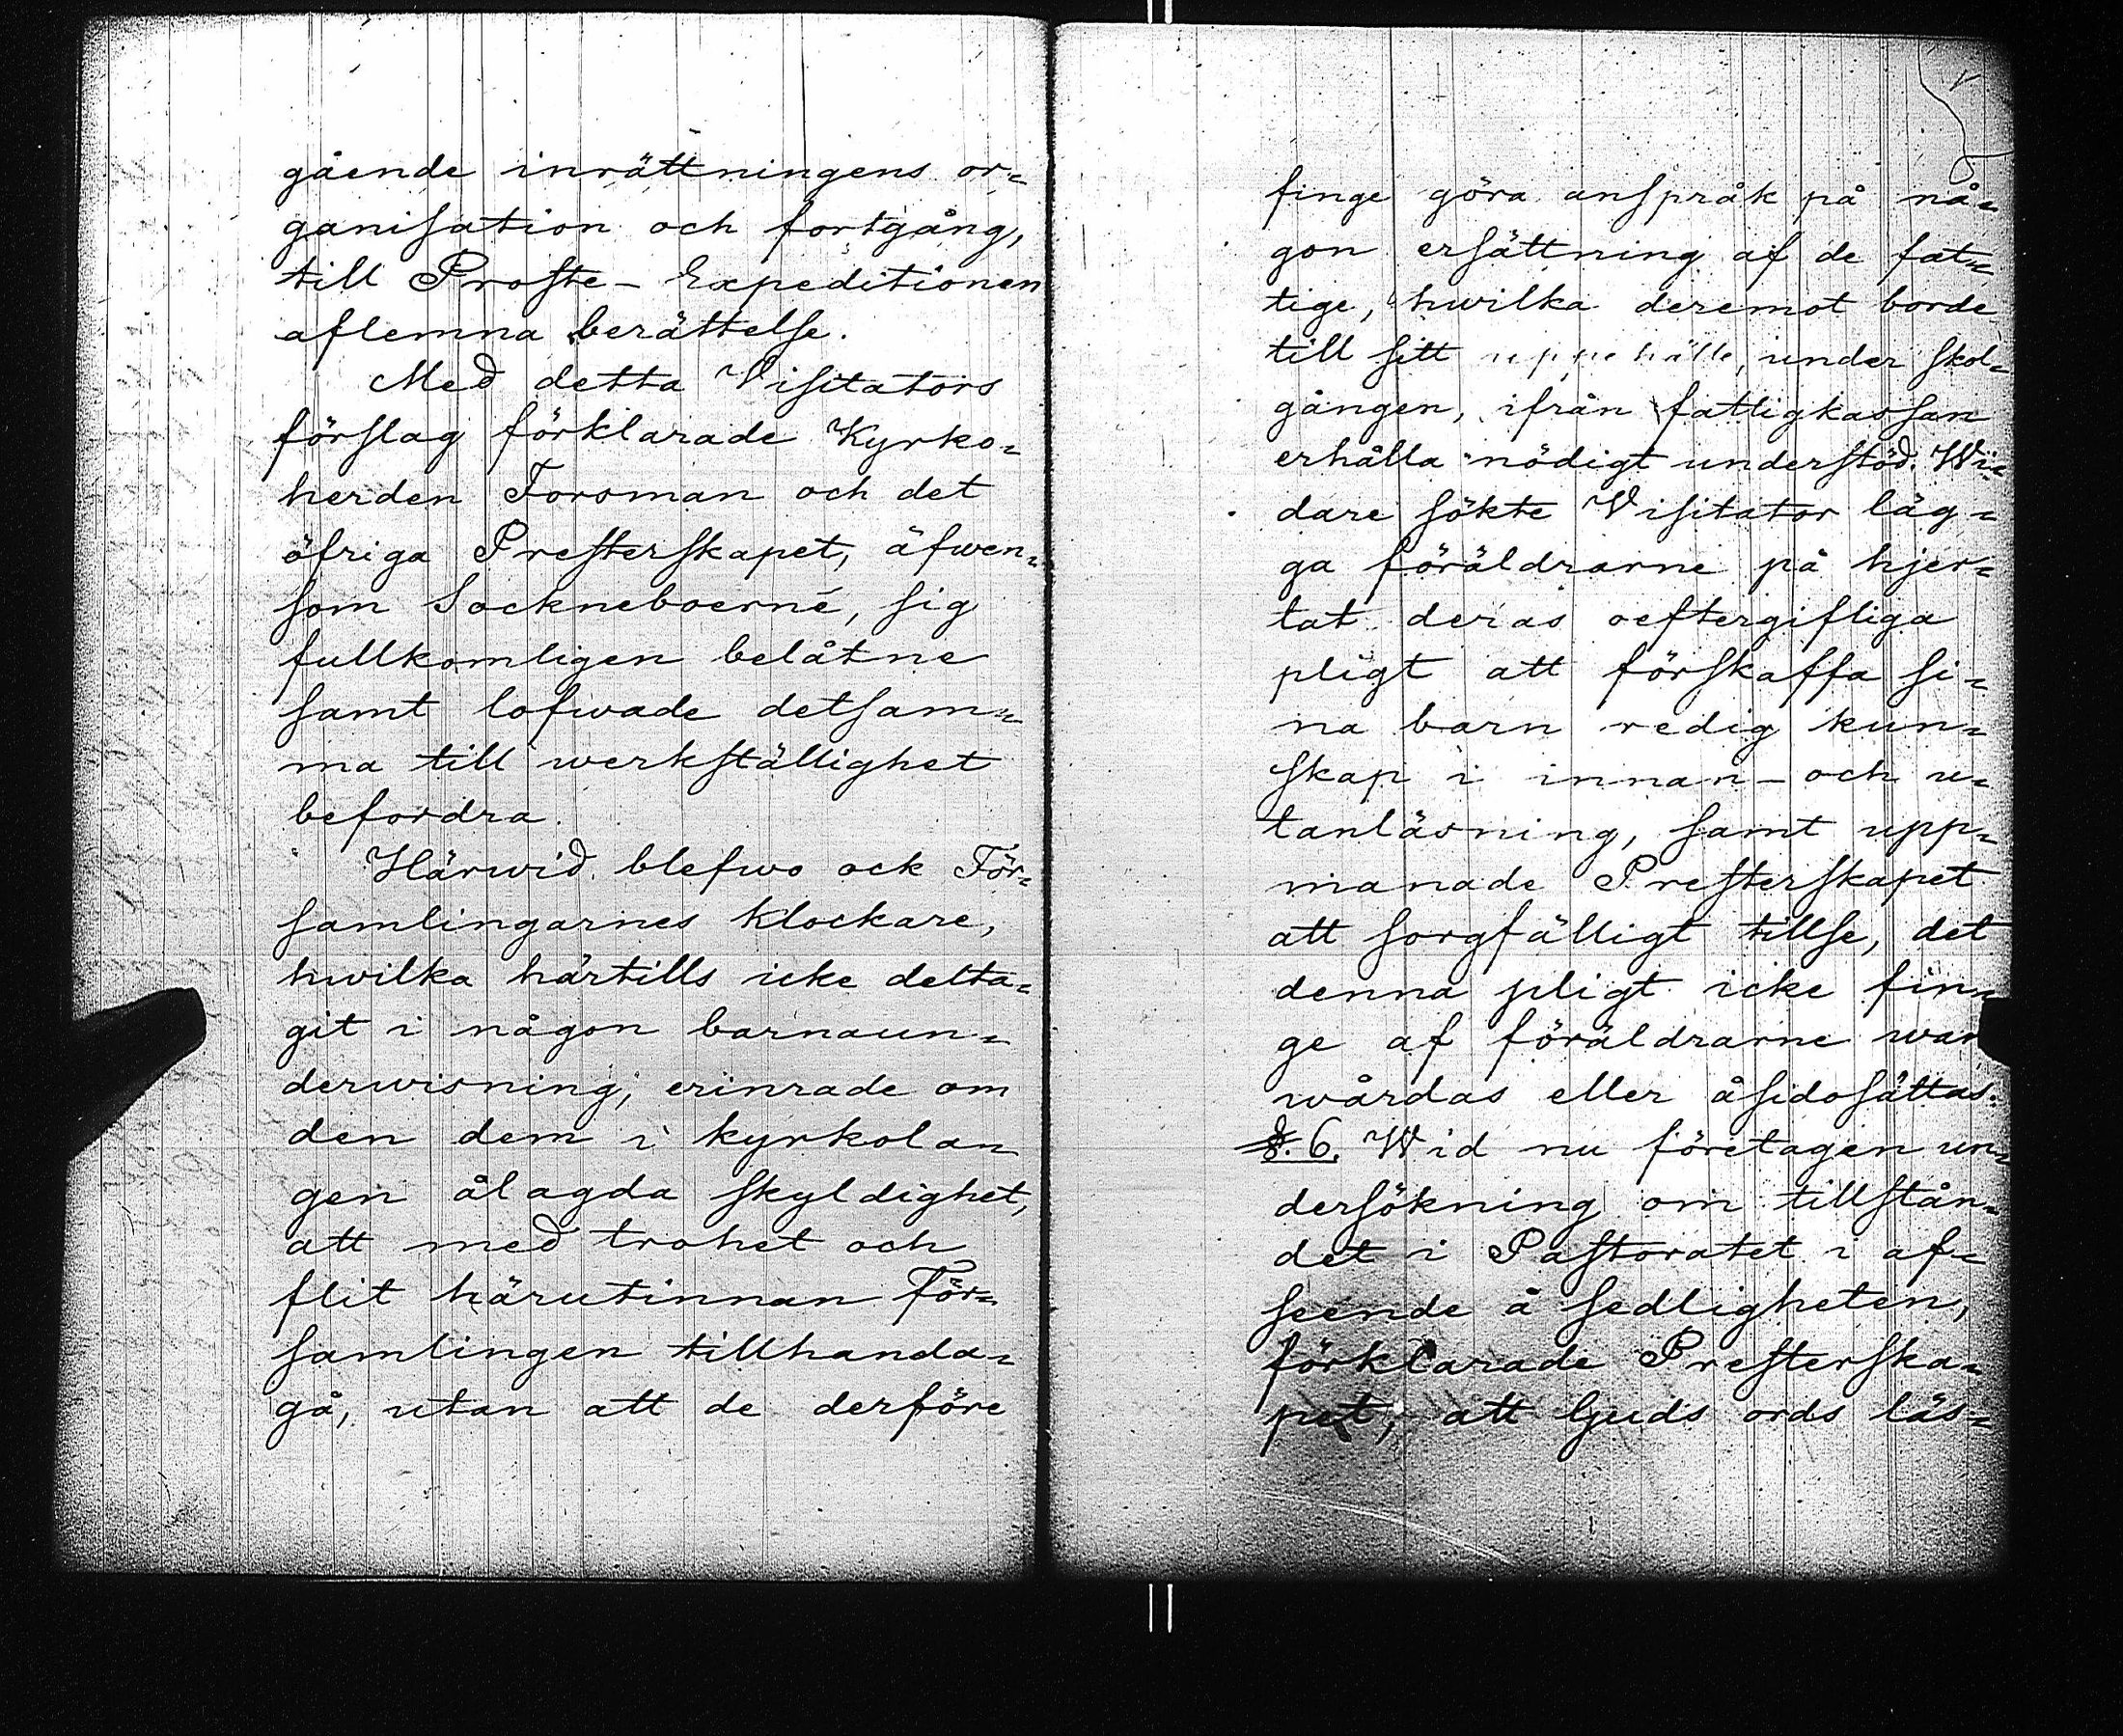 gående inrättningens or-
ganisation och fortgång,
till Proste-Expeditionen
aflemna berättelse.
Med detta Visitators
förslag förklarade Kyrko-
herden Forsman och det
öfriga Presterskapet, äfwen-
som Sockneboerne, sig
fullkomligen belåtne
samt lofwade detsam-
ma till werkställighet
befordra.
Härwid blefwo ock För-
samlingarnes klockare,
hwilka härtills icke delta-
git i någon barnaun-
derwisning, erinrade om
den dem i kyrkola-
gen ålagda skyldighet,
att med trohet och
flit härutinnan För-
samlingen tillhanda-
gå, utan att de derföre
finge göra anspråk på nå-
gon ersättning af de fat-
tige, hwilka deremot borde
till sitt uppehälle, under skol-
gången, ifrån fattigkassan
erhålla nödigt understöd. Wi-
dare sökte Visitator läg-
ga föräldrarne på hjer-
tat deras oeftergifliga
pligt att förskaffa si-
na barn redig kun-
skap i innan- och u-
tanläsning, samt upp-
manade Presterskapet
att sorgfälligt tillse, det
denna pligt icke fin-
ge af föräldrarne wan
wårdas eller åsidosättas.
§. 6. Wid nu företagen un-
dersökning om tillstån-
det i Pastoratet i af-
seende å sedligheten,
förklarade Prestersка-
pet, att Guds ords läs-